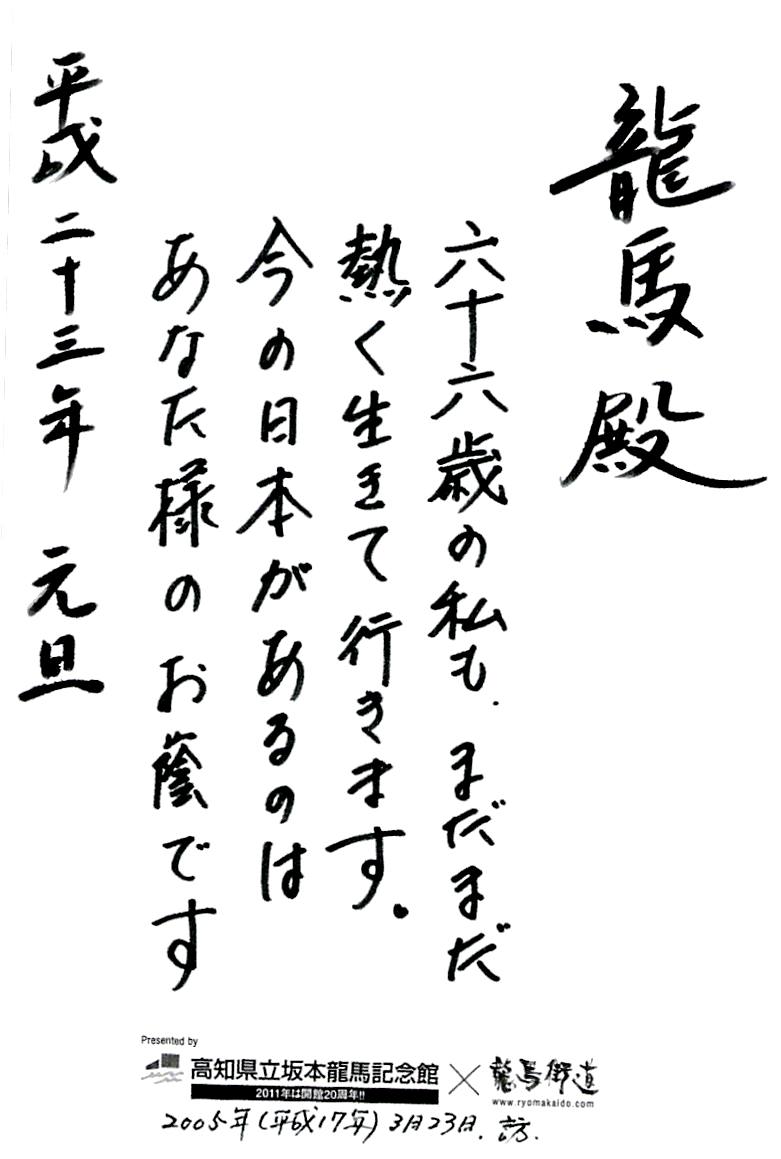 龍馬殿
六十六歳の私も、まだまだ
熱く生きて行きます。
今の日本があるのは
あなた様のお蔭です
平成二十三年 元旦
Presented by
高知県立坂本龍馬記念館 × 龍馬街道
2011年は開館20周年!!
www.ryomakaido.com
2005年(平成17年)3月23日、訪.